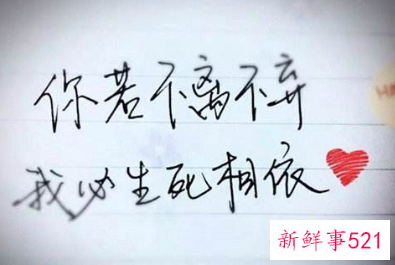 你若不离不弃
我必生死相依
新鲜事521